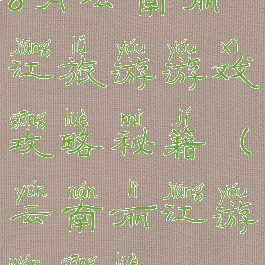 云南丽
jiāng lǚ yóu yóu xì
江旅游游戏
gōng lüè mì jí
攻略秘籍（
yún nán lì jiāng yóu
云南丽江游